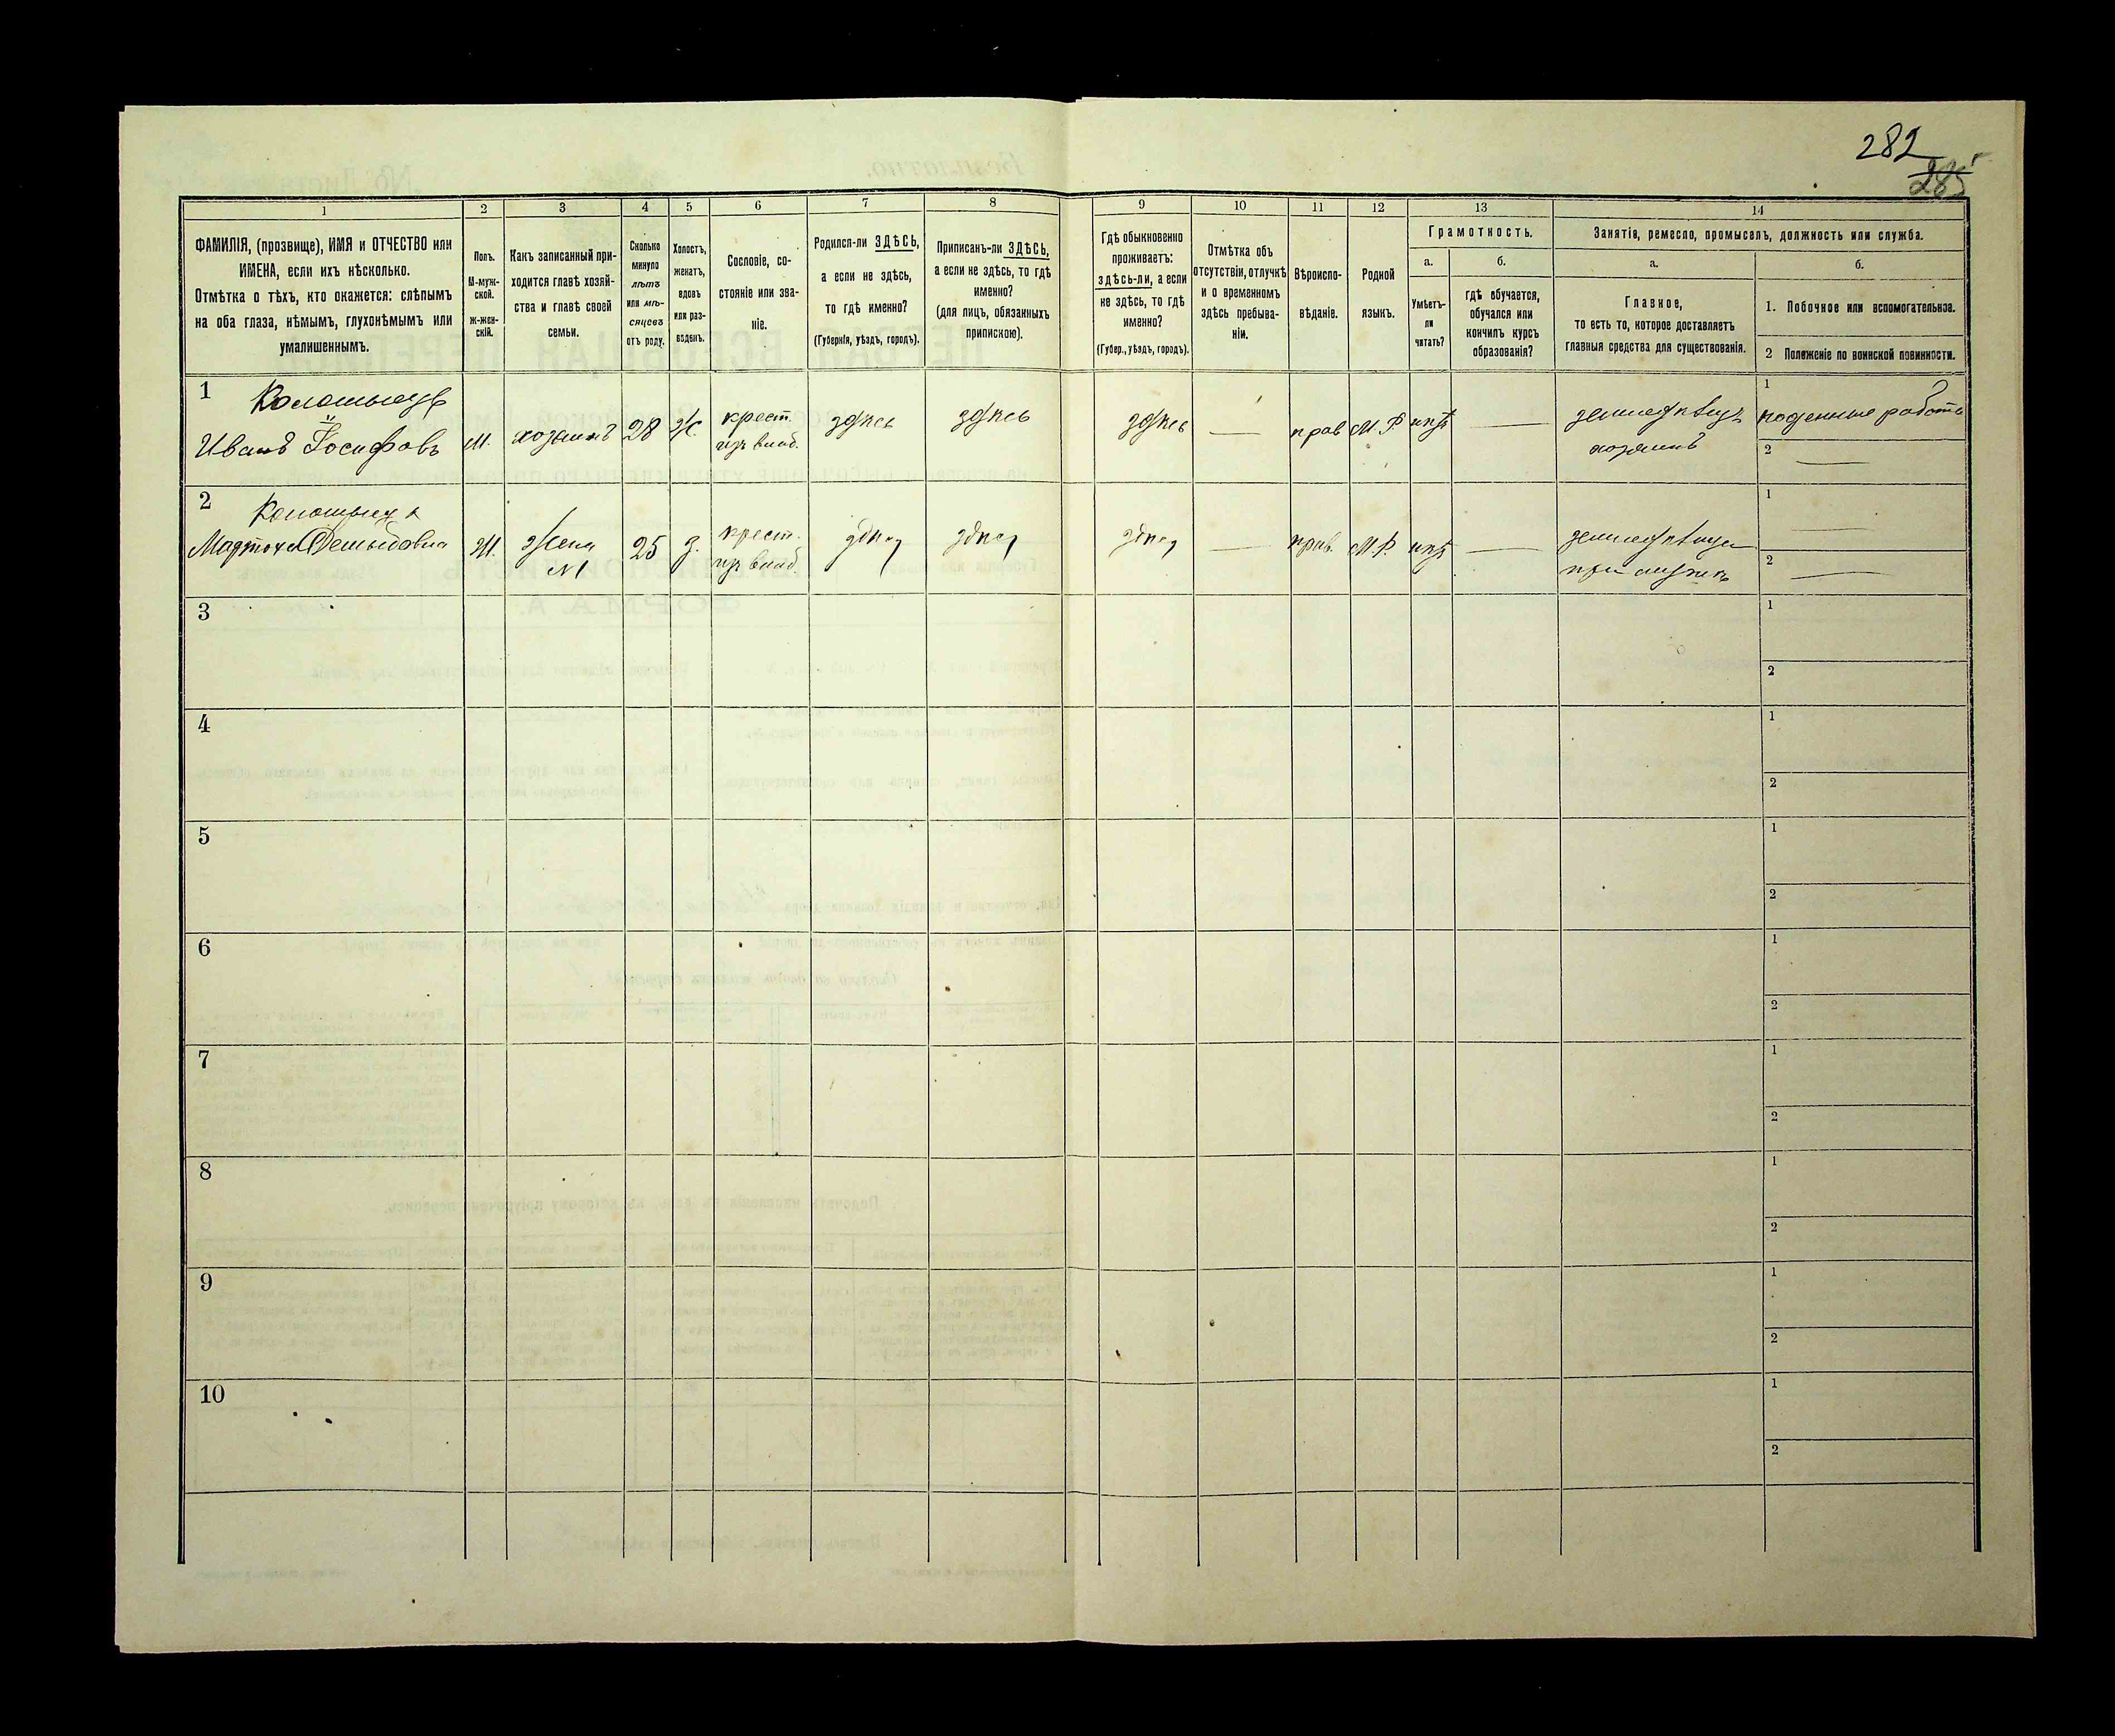 282
285
1
2
3
4
5
6
7
8
9
10
11
12
13
14
ФАМИЛІЯ, (прозвище), ИМЯ и ОТЧЕСТВО или
ИМЕНА, если ихъ нѣсколько.
Отмѣтка о тѣхъ, кто окажется: слѣпымъ
на оба глаза, нѣмымъ, глухонѣмымъ или
умалишеннымъ.
Полъ.
М-муж-
ской.
ж-жен-
скій.
Какъ записанный при-
ходится главѣ хозяй-
ства и главѣ своей
семьи.
Сколько
минуло
лѣтъ
или мѣ-
сяцевъ
отъ роду.
Холостъ,
женатъ,
вдовъ
или раз-
веденъ.
Сословіе, со-
стояніе или зва-
ніе.
Родился-ли ЗДѢСЬ,
а если не здѣсь,
то гдѣ именно?
(Губернія, уѣздъ, городъ).
Приписанъ-ли ЗДѢСЬ,
а если не здѣсь, то гдѣ
именно?
(для лицъ, обязанныхъ
припискою).
Гдѣ обыкновенно
проживаетъ:
здѣсь-ли, а если
не здѣсь, то гдѣ
именно?
(Губер., уѣздъ, городъ).
Отмѣтка объ
отсутствіи, отлучкѣ
и о временномъ
здѣсь пребыва-
ніи.
Вѣроиспо-
вѣданіе.
Родной
языкъ.
Грамотность.
а.
б.
Умѣетъ-
ли
читать?
гдѣ обучается,
обучался или
кончилъ курсъ
образованія?
Занятіе, ремесло, промыселъ, должность или служба.
а.
б.
Главное,
то есть то, которое доставляетъ
главныя средства для существованія.
1. Побочное или вспомогательное.
2 Положеніе по воинской повинности.
1
Иванъ Іосифовъ
М.
хозяинъ
28
ж.
крест.
изъ влад.
здѣсь
здѣсь
здѣсь
—
прав
М. Р.
нѣтъ
—
хозяинъ
1
поденные работы
2
—
2
Демидовна
Ж.
жена
N1
25
з.
крест.
изъ влад
здѣсь
здѣсь
здѣсь
—
прав.
М Р.
нѣтъ
—
при мужѣ
1
—
2
—
3
1
2
4
1
2
5
1
2
6
1
2
7
1
2
8
1
2
9
1
2
10
1
2